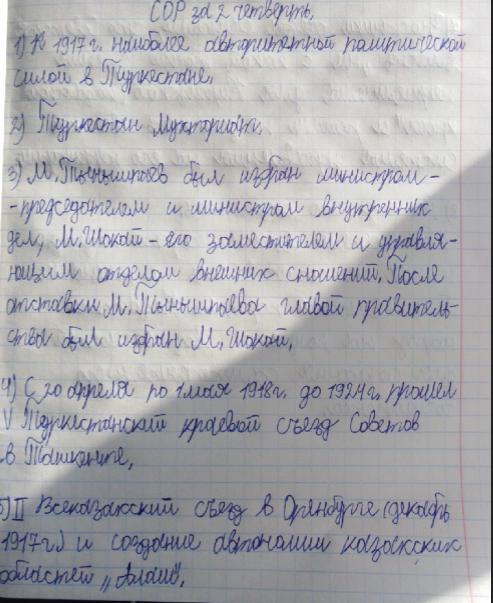 СОР за 2 четверть.
1) К 1917 г. наиболее авторитетной политической
силой в Туркестане.
2) Туркестан Мухториат.
3) М. Тынышпаев был избран министром-
-председателем и министром внутренник
дел, М. Шокай - его заместителем и управля-
ющим отделом внешних сношений. После
отставки М. Тынышпаева главой правитель-
ства был избран М. Шокай.
4) С 20 апреля по 1 мая 1918 г. до 1924 г. прошел
V Туркестанский краевой съезд Советов
в Ташкенте.
5) II Всеказахский съезд в Оренбурге (декабрь
1917 г.) и создание автономии казахских
областей „Алаш".